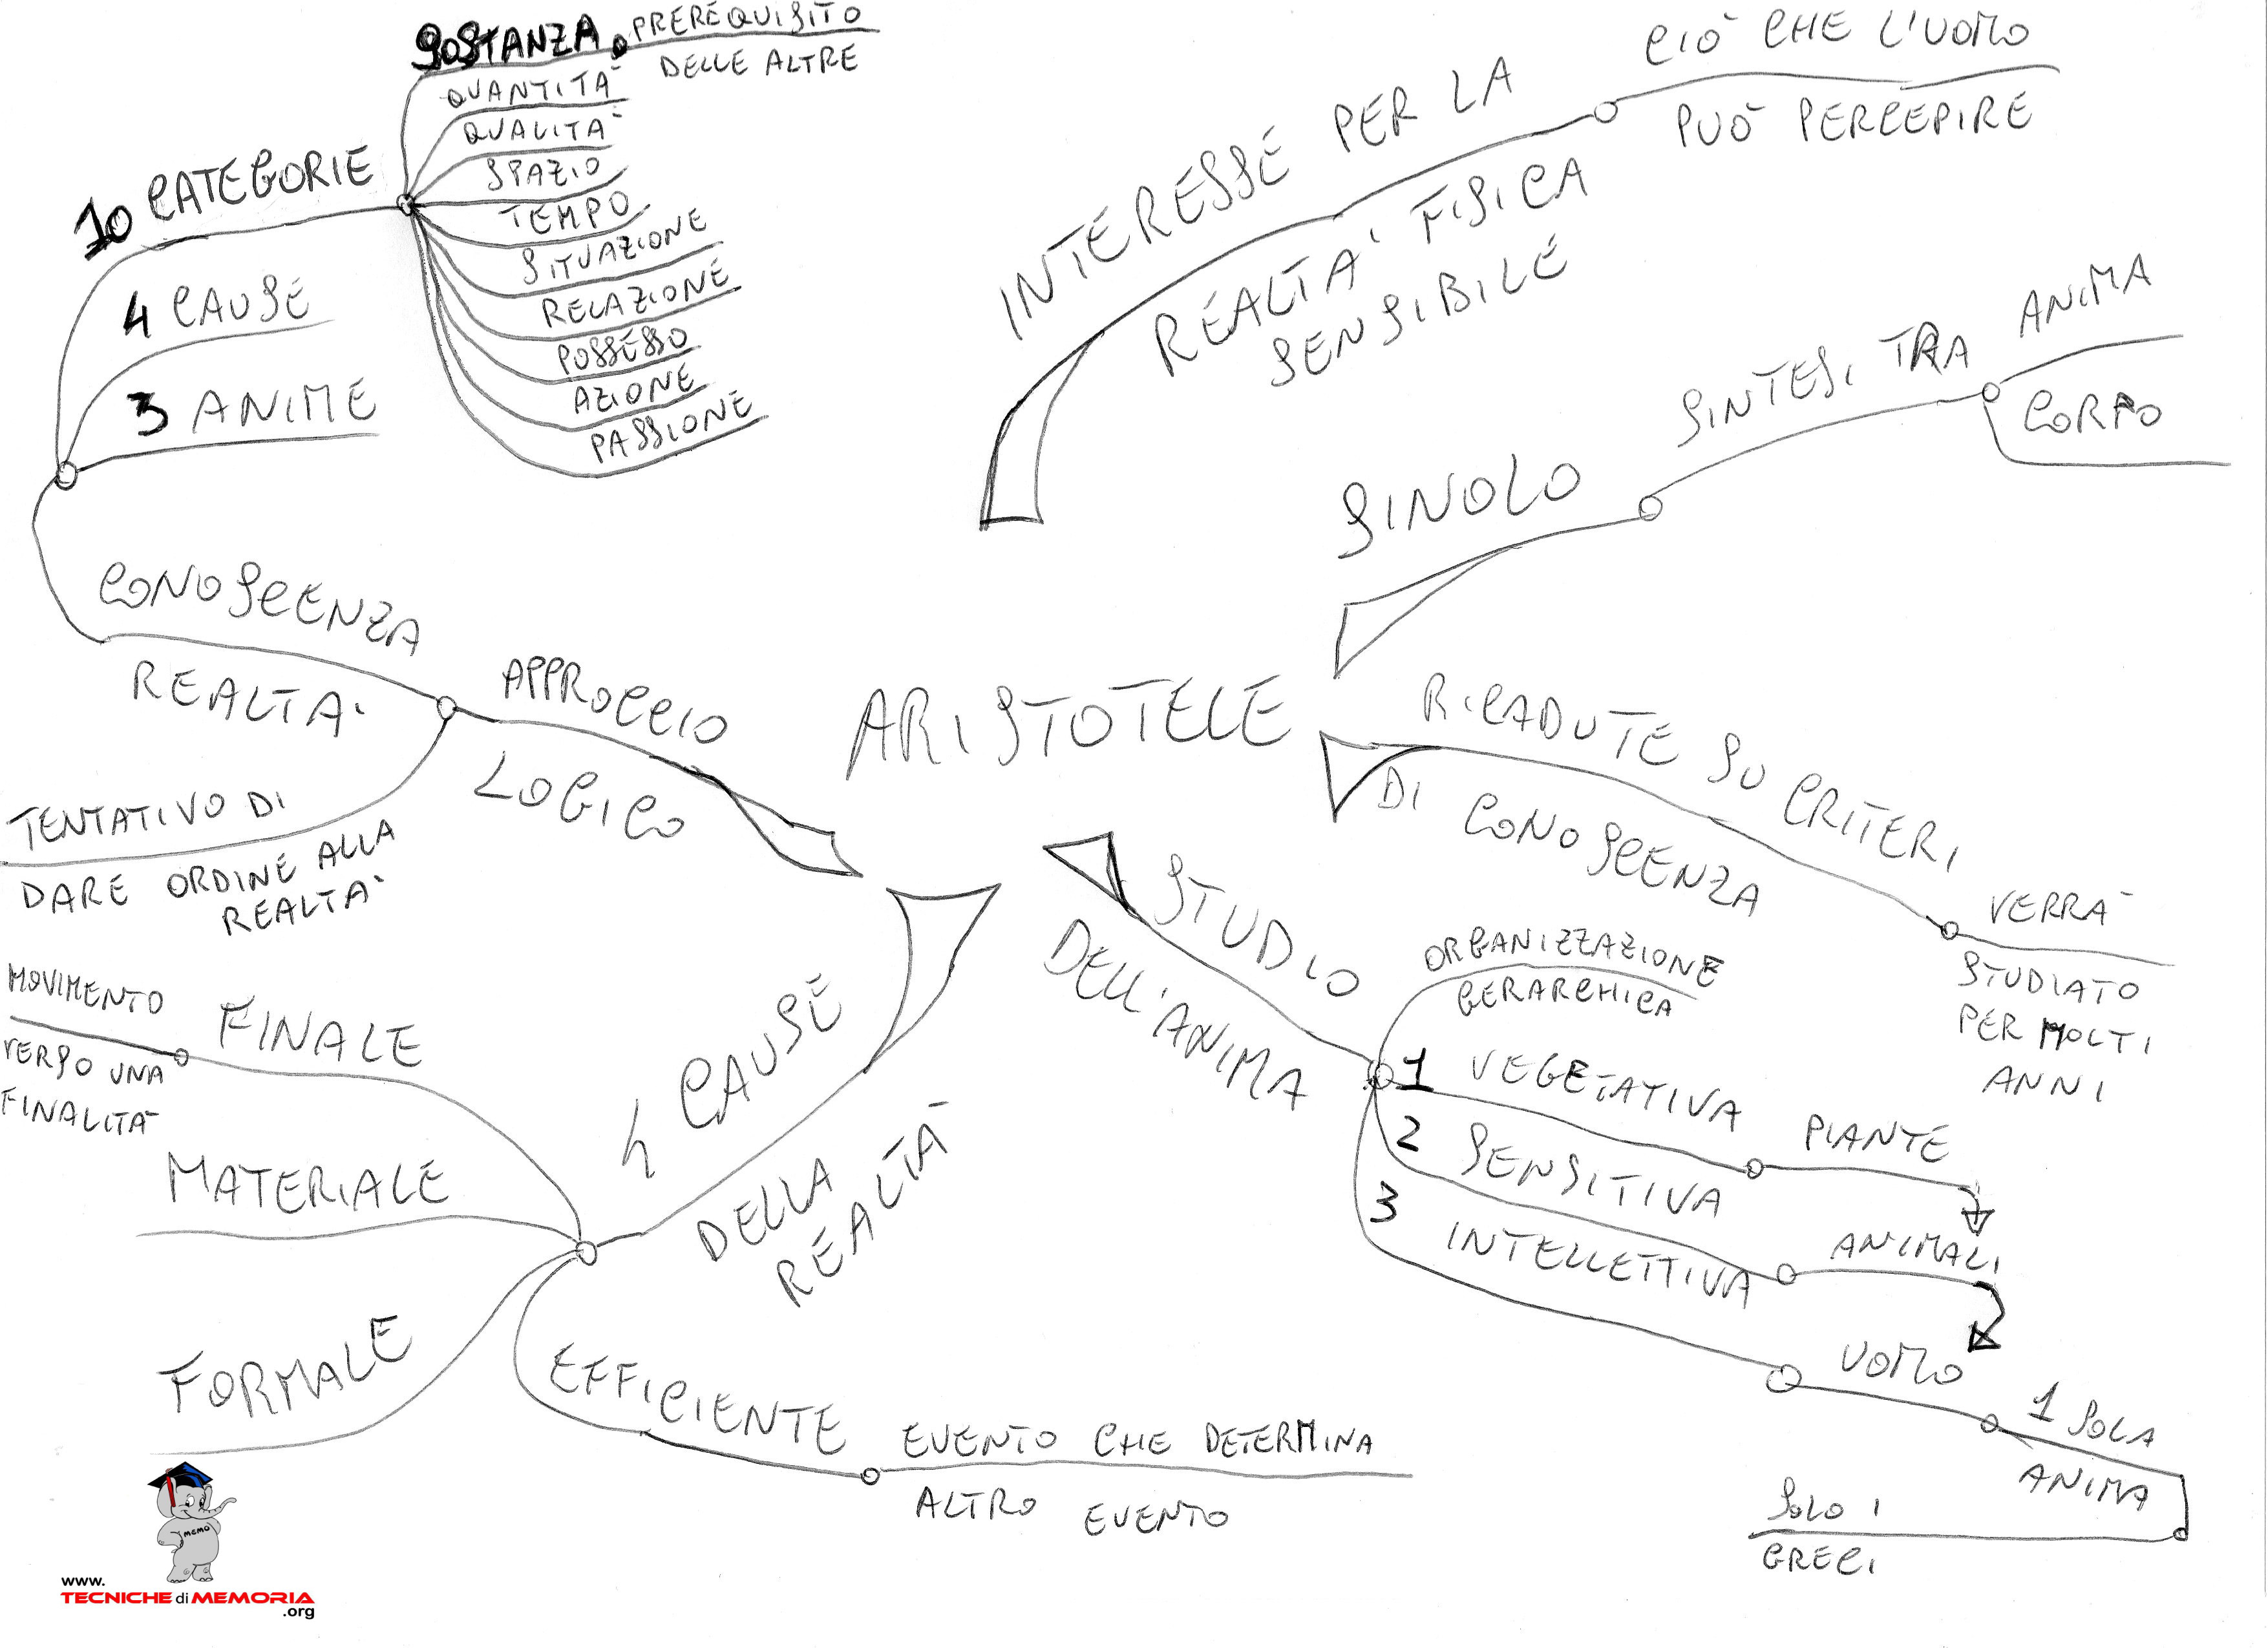 ARISTOTELE
INTERESSE PER LA
REALTA' FISICA
SENSIBILE
CIÒ CHE L'UOMO
PUÒ PERCEPIRE
SINOLO
SINTESI TRA
ANIMA
CORPO
RICADUTE SU CRITERI
DI CONOSCENZA
VERRÀ
STUDIATO
PER MOLTI
ANNI
STUDIO
DELL'ANIMA
ORGANIZZAZIONE
GERARCHICA
1 VEGETATIVA
PIANTE
2 SENSITIVA
ANIMALI
3 INTELLETTIVA
UOMO
1 SOLA
ANIMA
SOLO I
GRECI
4 CAUSE
DELLA
REALTÀ
EFFICIENTE
EVENTO CHE DETERMINA
ALTRO EVENTO
FORMALE
MATERIALE
FINALE
MOVIMENTO
VERSO UNA
FINALITÀ
APPROCCIO
LOGICO
TENTATIVO DI
DARE ORDINE ALLA
REALTA'
CONOSCENZA
REALTA'
3 ANIME
4 CAUSE
10 CATEGORIE
SOSTANZA
PREREQUISITO
DELLE ALTRE
QUANTITÀ
QUALITÀ
SPAZIO
TEMPO
SITUAZIONE
RELAZIONE
POSSESSO
AZIONE
PASSIONE
MEMO
www.
TECNICHE di MEMORIA
.org